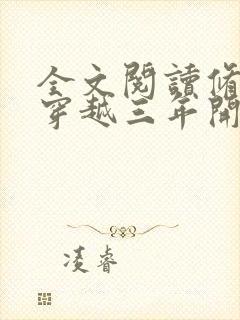 全文閱讀脩
穿越三年開
凌睿